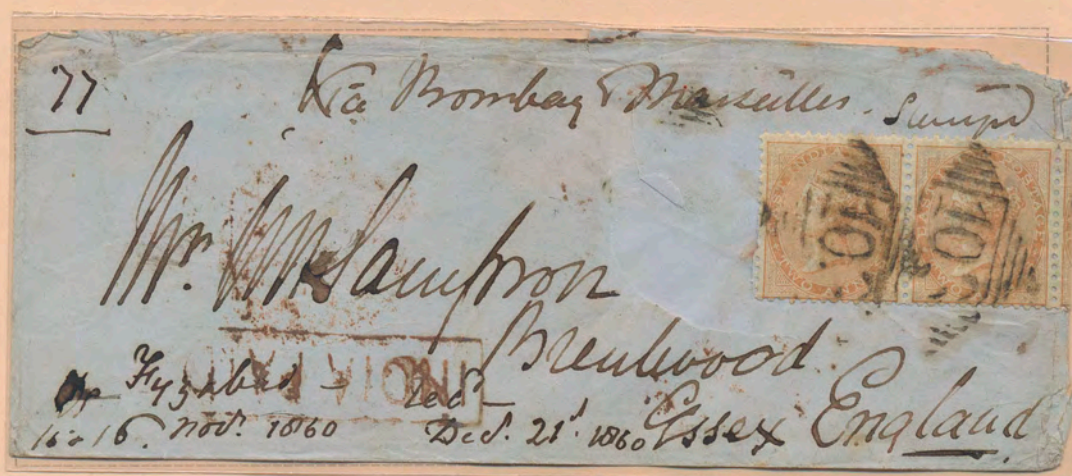 77
Via Bombay & Marseilles. Stampd
Mr. Wm Sampson
Brentwood.
Essex England
Fyzabad – Recd –
15 & 16. Novr. 1860 Decr. 21st. 1860
INDIA PAID
10 10